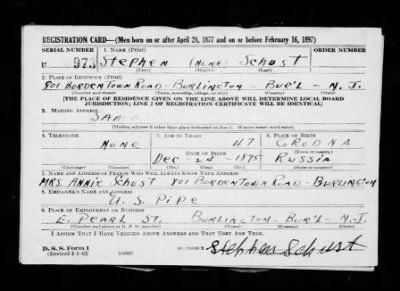 REGISTRATION CARD—(Men born on or after April 28, 1877 and on or before February 16, 1897)
SERIAL NUMBER 1. NAME (Print) ORDER NUMBER
U 973 STEPHEN (NONE) SCHUST
(First) (Middle) (Last)
2. PLACE OF RESIDENCE (Print)
801 BORDENTOWN ROAD - BURLINGTON - BUR'L - N. J.
(Number and street) (Town, township, village, or city) (County) (State)
[THE PLACE OF RESIDENCE GIVEN ON THE LINE ABOVE WILL DETERMINE LOCAL BOARD
JURISDICTION; LINE 2 OF REGISTRATION CERTIFICATE WILL BE IDENTICAL]
3. MAILING ADDRESS
SAME
(Mailing address if other than place indicated on line 2. If same insert word same)
4. TELEPHONE 5. AGE IN YEARS 6. PLACE OF BIRTH
NONE 47 GRODNA
DATE OF BIRTH (Town or county)
DEC - 24 - 1895 RUSSIA
(Exchange) (Number) (Mo.) (Day) (Yr.) (State or country)
7. NAME AND ADDRESS OF PERSON WHO WILL ALWAYS KNOW YOUR ADDRESS
MRS. ANNIE SCHUST 801 BORDENTOWN ROAD - BURLINGTON
8. EMPLOYER'S NAME AND ADDRESS
U. S. PIPE
9. PLACE OF EMPLOYMENT OR BUSINESS
E. PEARL ST. BURLINGTON - BUR'L - N. J.
(Number and street or R. F. D. number) (Town) (County) (State)
I AFFIRM THAT I HAVE VERIFIED ABOVE ANSWERS AND THAT THEY ARE TRUE.
D. S. S. Form 1
(Revised 4-1-42) (over) Stephen Schust